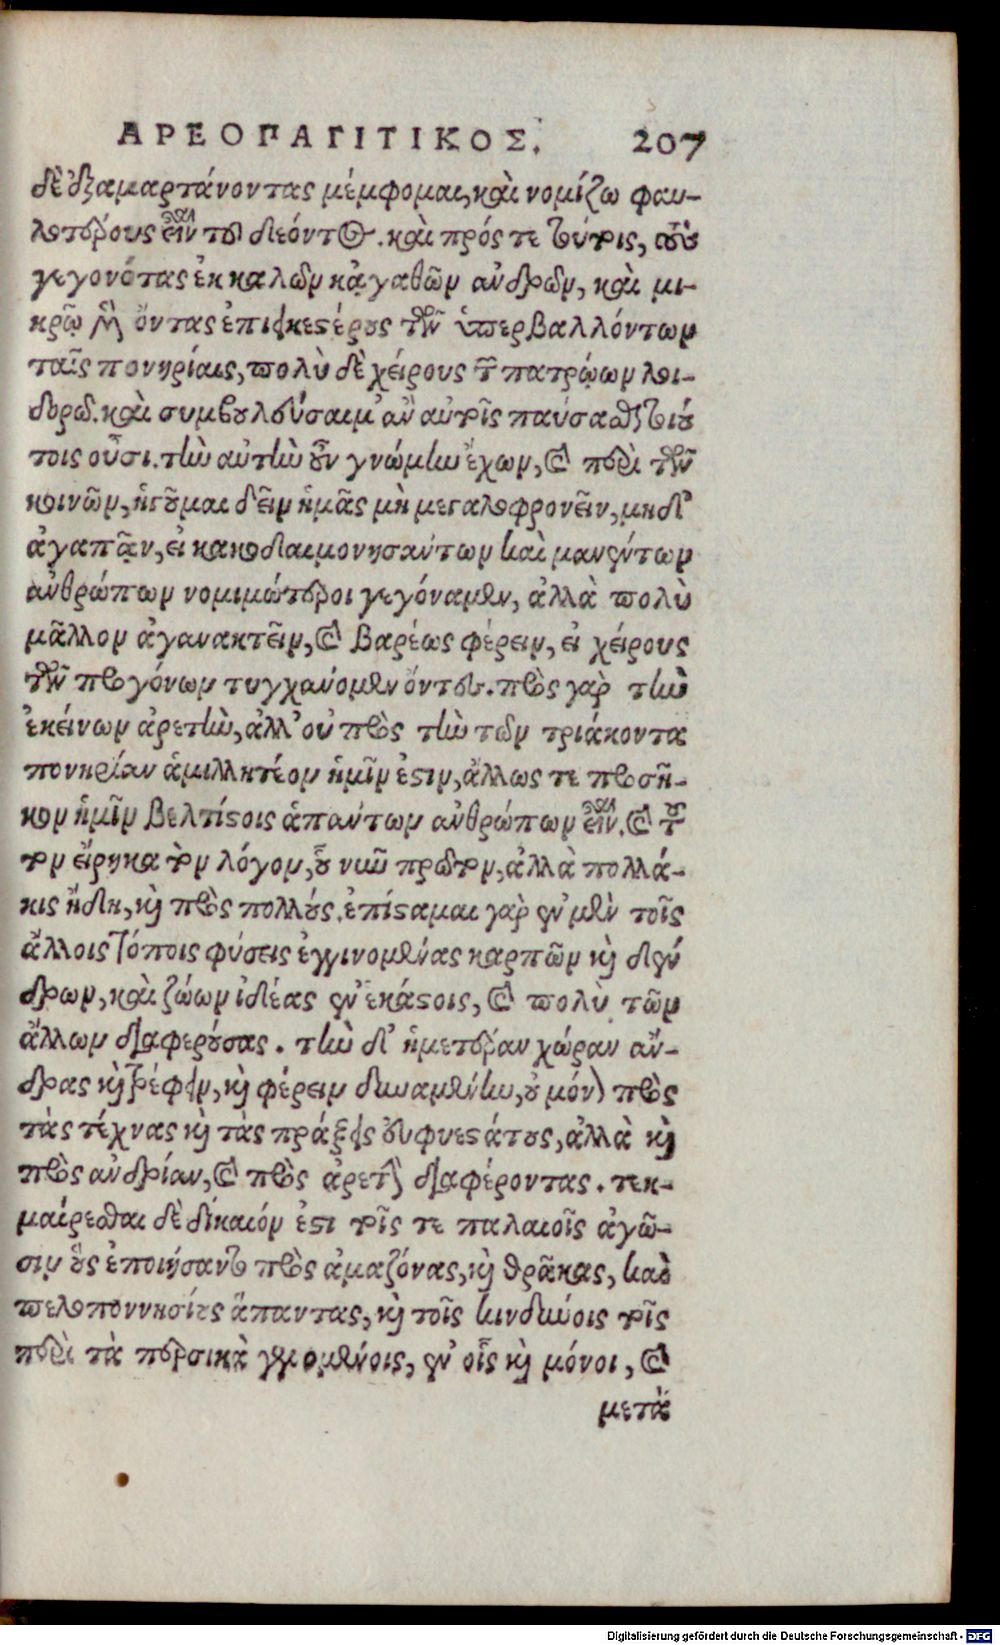 ΑΡΕΟΠΑΓΙΤΙΚΟΣ. 207
δὲ ἐξαμαρτάνοντας μέμφομαι, καὶ νομίζω φαυ-
λοτέρους εἶναι τοῦ δέοντος. καὶ πρός τε τούτοις, τοὺς
γεγονότας ἐκ καλῶν κἀγαθῶν ἀνδρῶν, καὶ μι-
κρῷ μὲν ὄντας ἐπιεικεστέρους τῶν ὑπερβαλλόντων
ταῖς πονηρίαις, πολὺ δὲ χείρους τῶν πατρῴων λοι-
δορῶ. καὶ συμβουλεύσαιμ' ἂν αὐτοῖς παύσασθαι τοιού
τοις οὖσι. τὴν αὐτὴν οὖν γνώμην ἔχων, καὶ περὶ τῶν
κοινῶν, ἡγοῦμαι δεῖν ἡμᾶς μὴ μεγαλοφρονεῖν, μηδ'
ἀγαπᾷν, εἰ κακοδαιμονησάντων καὶ μανέντων
ἀνθρώπων νομιμώτεροι γεγόναμεν, ἀλλὰ πολὺ
μᾶλλον ἀγανακτεῖν, καὶ βαρέως φέρειν, εἰ χείρους
τῶν προγόνων τυγχάνομεν ὄντες. πρὸς γὰρ τὴν
ἐκείνων ἀρετὴν, ἀλλ' οὐ πρὸς τὴν τῶν τριάκοντα
πονηρίαν ἁμιλλητέον ἡμῖν ἐστιν, ἄλλως τε προσῆ-
κον ἡμῖν βελτίστοις ἁπάντων ἀνθρώπων εἶναι. καὶ τοῦ
τον εἴρηκα τὸν λόγον, οὐ νῦν πρῶτον, ἀλλὰ πολλά-
κις ἤδη, καὶ πρὸς πολλούς. ἐπίσταμαι γὰρ ἐν μὲν τοῖς
ἄλλοις τόποις φύσεις ἐγγινομένας καρπῶν καὶ δέν
δρων, καὶ ζώων ἰδίας ἐν ἑκάστοις, καὶ πολὺ τῶν
ἄλλων διαφερούσας. τὴν δ' ἡμετέραν χώραν ἄν-
δρας καὶ τρέφειν, καὶ φέρειν δυναμένην, οὐ μόνον πρὸς
τὰς τέχνας καὶ τὰς πράξεις εὐφυεστάτους, ἀλλὰ καὶ
πρὸς ἀνδρίαν, καὶ πρὸς ἀρετὴν διαφέροντας. τεκ-
μαίρεσθαι δὲ δίκαιόν ἐστι τοῖς τε παλαιοῖς ἀγῶ-
σιν οὓς ἐποιήσαντο πρὸς ἀμαζόνας, καὶ θρᾷκας, καὶ
πελοποννησίους ἅπαντας, καὶ τοῖς κινδύνοις τοῖς
περὶ τὰ περσικὰ γενομένοις, ἐν οἷς καὶ μόνοι, καὶ
μετὰ
Digitalisierung gefördert durch die Deutsche Forschungsgemeinschaft - DFG